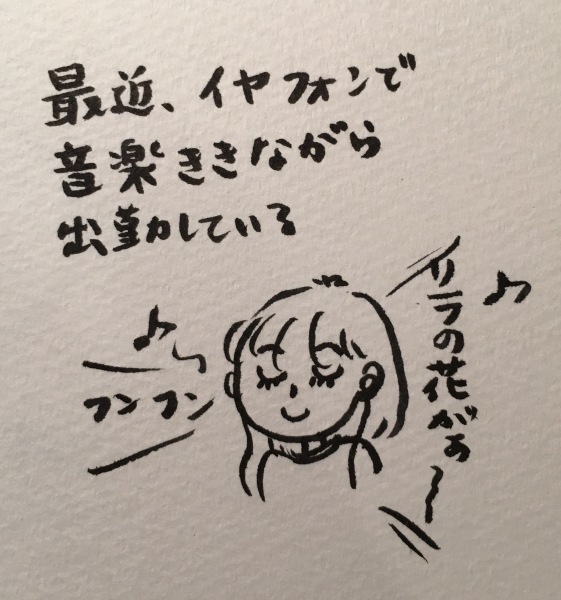 最近、イヤフォンで
音楽ききながら
出勤している
リラの花がぁ〜
フンフン